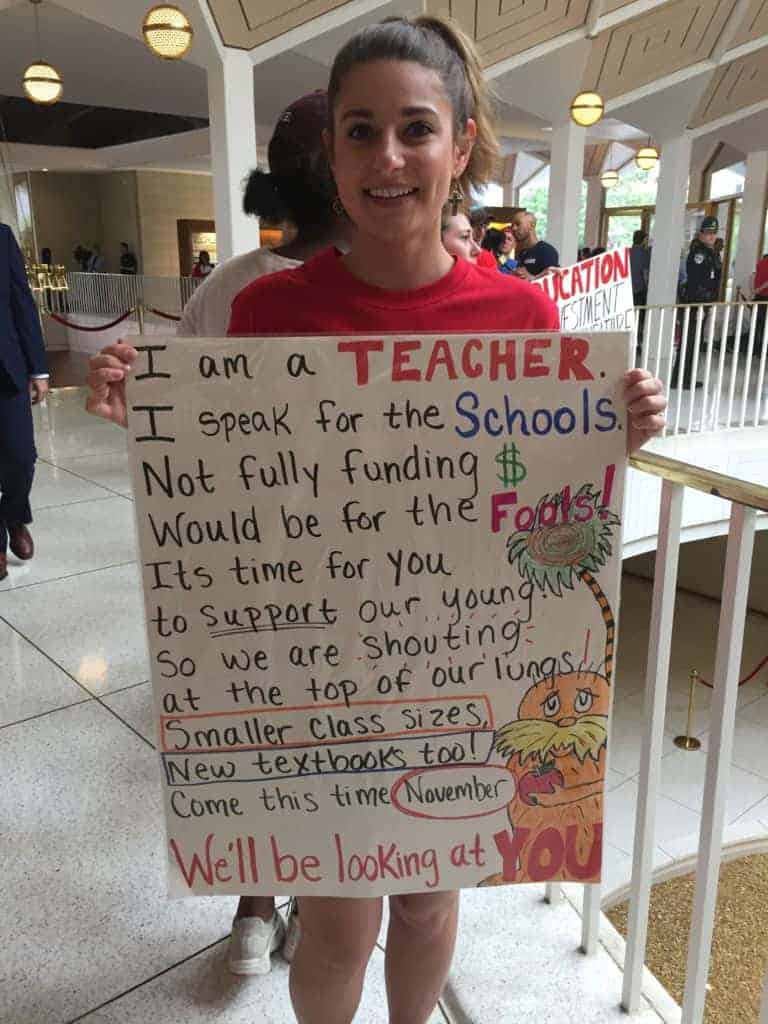 I am a TEACHER.
I speak for the Schools.
Not fully funding $
Would be for the Fools!
Its time for you
to support our young!
So we are shouting
at the top of our lungs!
Smaller class sizes,
New textbooks too!
Come this time November
We'll be looking at YOU
UCATION
ESTMENT